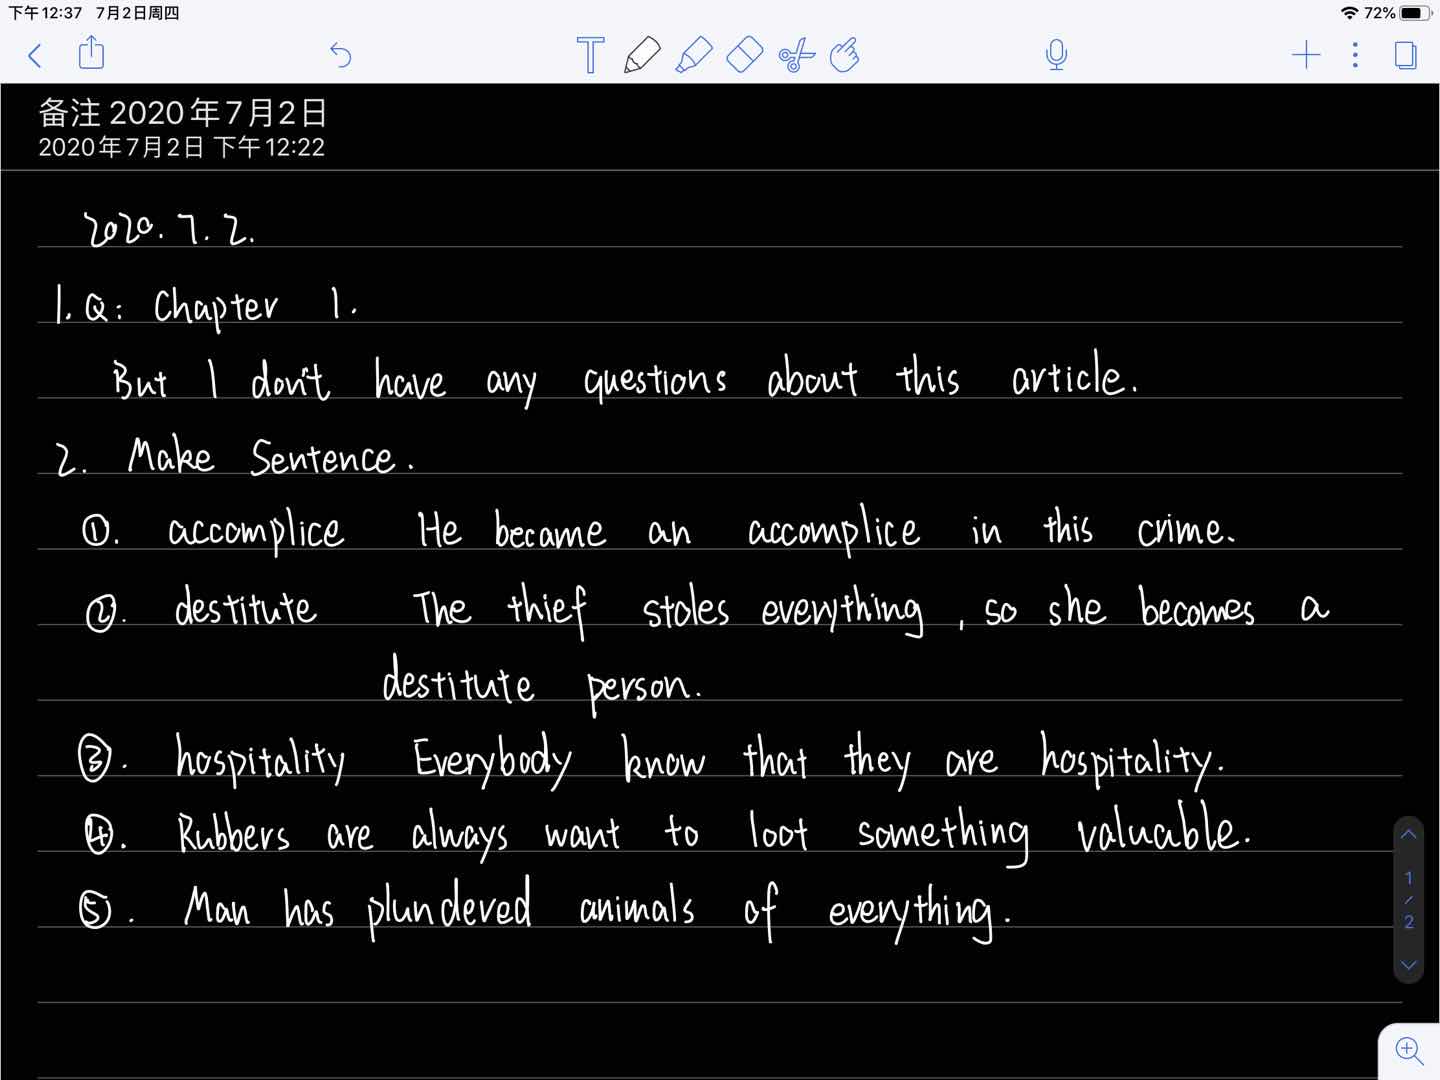 下午12:37 7月2日周四
72%
备注 2020年7月2日
2020年7月2日 下午12:22
2020.7.2.
1. Q: Chapter 1.
But I don't have any questions about this article.
2. Make Sentence.
①. accomplice He became an accomplice in this crime.
②. destitute The thief stoles everything, so she becomes a
destitute person.
③. hospitality Everybody know that they are hospitality.
④. Rubbers are always want to loot something valuable.
⑤. Man has plundeved animals of everything.
1
/
2